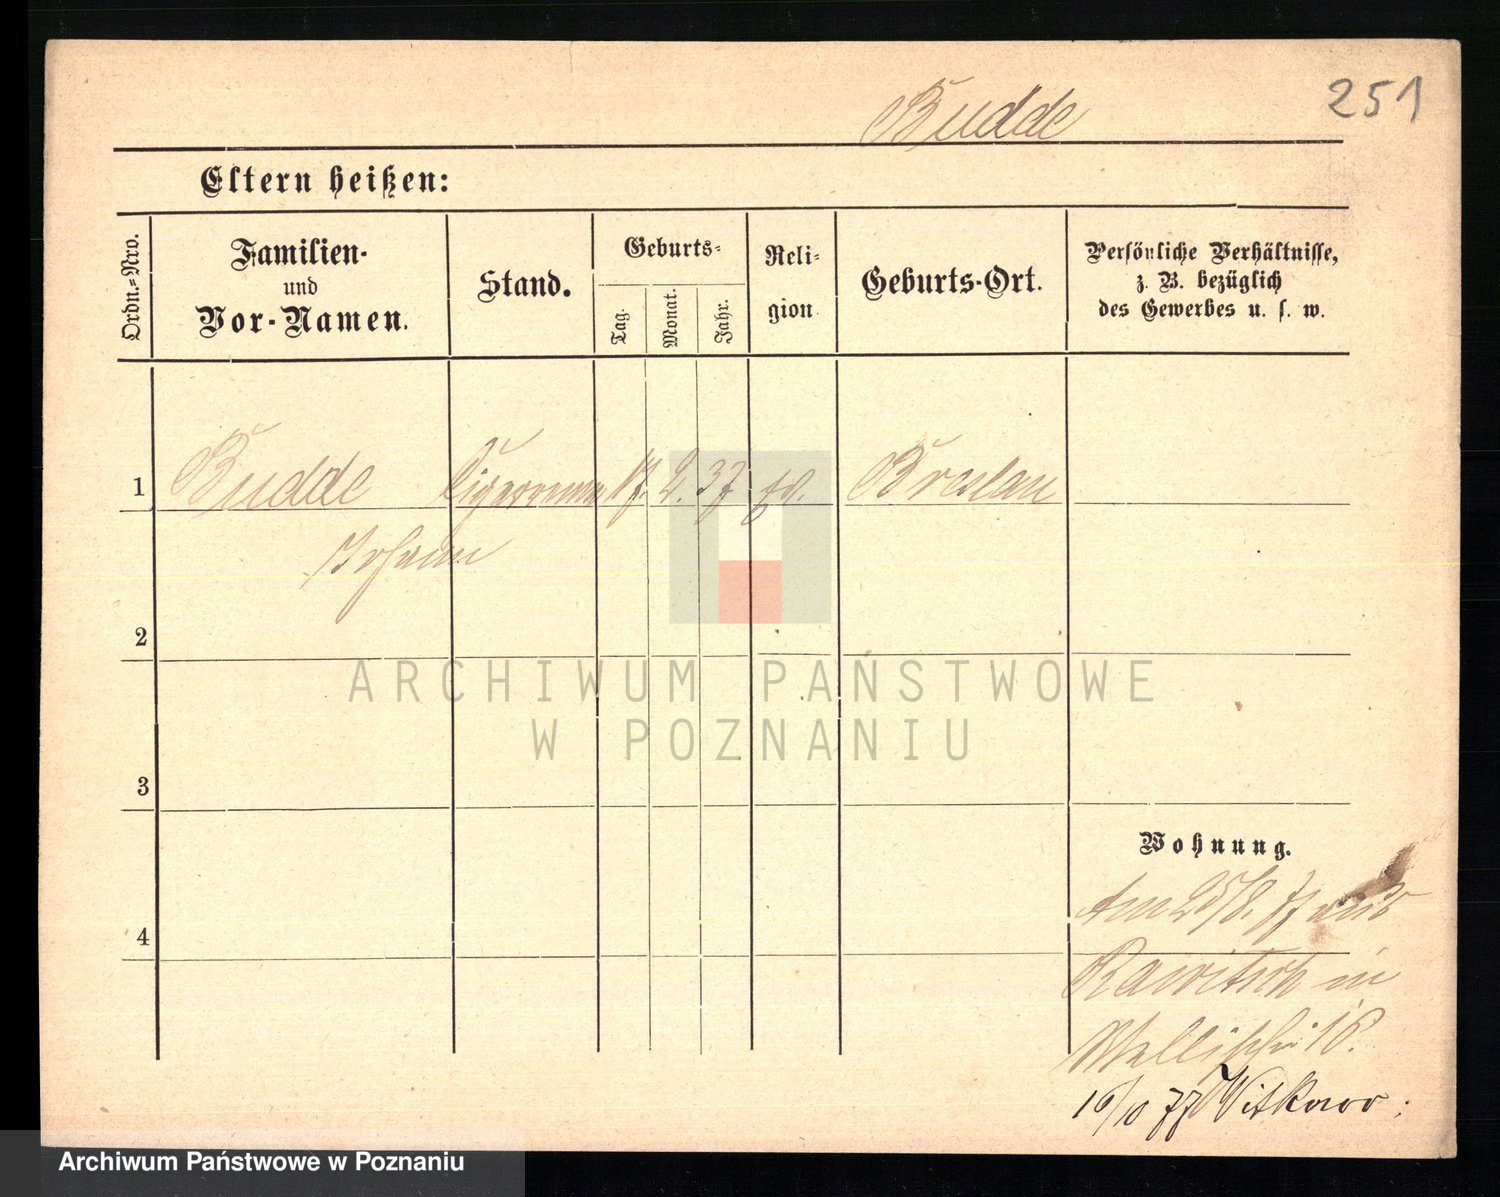 251
Budde
Eltern heißen:
Ordn.=Nro.
Familien-
und
Vor-Namen.
Stand.
Geburts=
Tag.
Monat.
Jahr.
Reli=
gion
Geburts-Ort.
Persönliche Verhältnisse,
z. B. bezüglich
des Gewerbes u. s. w.
1
Budde
17. 2. 37
ev.
Breslau
Johann
2
ARCHIWUM PAŃSTWOWE
W POZNANIU
3
Wohnung.
Am 25/8. 77 aus
4
Rawitsch in
Wallischei 16.
16/10 77 Witkowo.
Archiwum Państwowe w Poznaniu